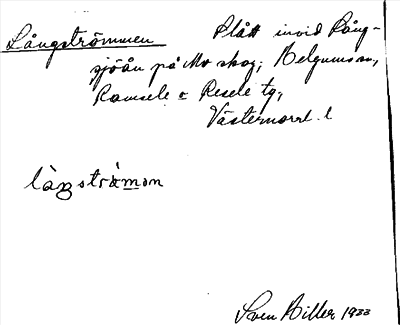 Långströmmen Slått invid Rång-
sjöån på Mo skog; Helgums sn,
Ramsele o Resele tg,
Västernorrl. l
làŋstrə̀mən
Sven Hiller 1933